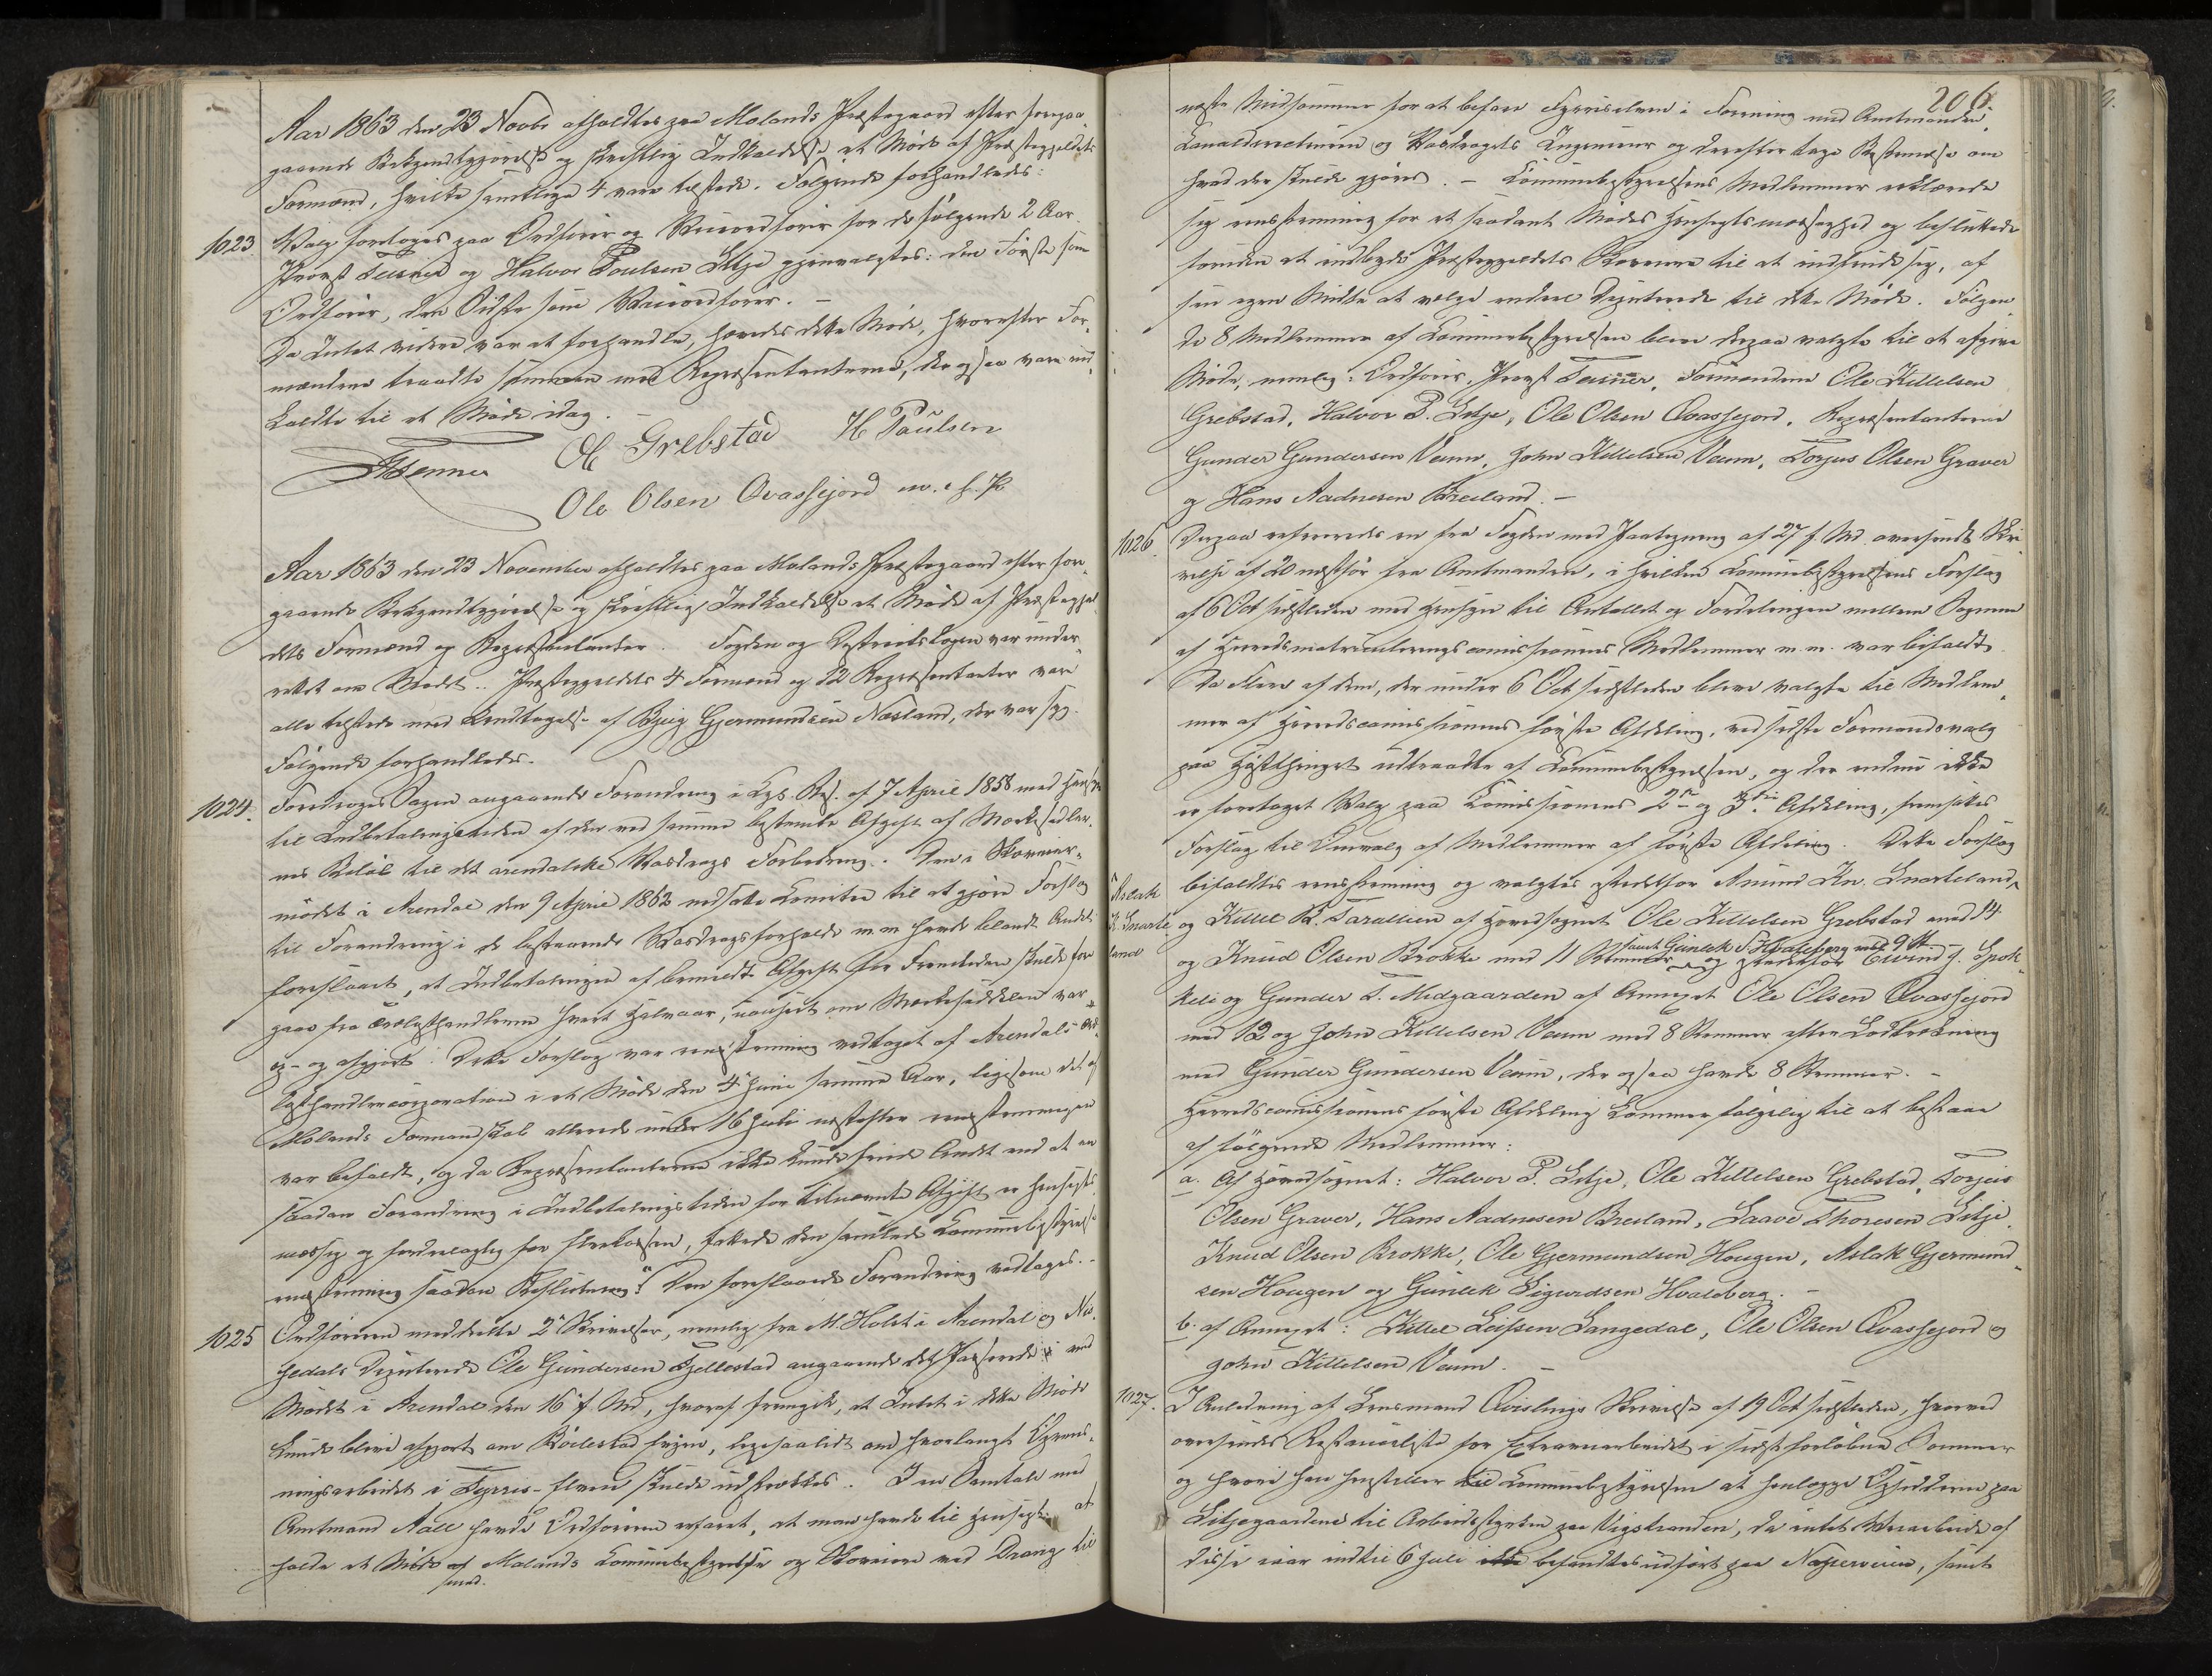 Aar 1863 den 23 Novbr afholdtes paa Molands Præstegaard efter foregaa-
gaaende Bekjendtgjørelse og skriftlig Indkaldelse et Møde af Præstegjeldets
Formænd, hvilke samtlige 4 vare tilstede. Følgende forhandledes:
1023. Valg foretoges paa Ordfører og Viceordfører for de følgende 2 Aar.
Provst Teisner og Halvor Poulsen Litje gjenvalgtes: den Første som
Ordfører, den Sidste som Viceordfører. –
Da Intet videre var at forhandle, hævedes dette Møde, hvorefter For-
mændene traadte sammen med Repræsentanterne, der ogsaa vare ind-
kaldte til et Møde idag. –
Grebstad H Paulsen
Ole Olsen Qvassejord m. f. P.
Aar 1863 den 23 November afholdtes paa Molands Præstegaard efter fore-
gaaende Bekjendtgjørelse og skriftlig Indkaldelse et Møde af Præstegjel-
dets Formænd og Repræsentanter. Fogden og Distriktslægen var under-
rettet om Mødet. Præstegjeldets 4 Formænd og 12 Repræsentanter vare
alle tilstede med Undtagelse af Gjermundsen Næsland, der var syg.
Følgende forhandledes.
1024. Foredroges Sagen angaaende Forandring i Kgl. Res. af 7 April 1858 med Hensyn
til Indbetalingstiden af den ved samme bestemte Afgift af Mærkesedler-
nes Beløb til det arendalske Vasdrags Forbedring. Den i
mødet i Arendal den 9 April 1862 nedsatte Komite til at gjøre Forslag
til Forandring i de bestaaende Vasdragsforholde m.m. havde blandt Andet
foreslaaet, at Indbetalingen af bemeldte Afgift for Fremtiden skulde fore-
gaae fra Trælasthandlerne hvert Halvaar, uanseet om Mærkesedlerne var
og afgjort. Dette Forslag var eenstemmig vedtaget af Arendals Træ-
lasthandlercorporation i et Møde den 4 Juni samme Aar, ligesom det af
Molands Formandskab allerede under 16 Juli næstefter eenstemmigen
var bifaldt, og da Repræsentanterne ikke kunde finde Andet end at en
saadan Forandring i Indbetalingstiden for bemeldte Afgift er hensigts-
mæssig og fordelagtig for Fløtkassen, fattede den samlede Kommunebestyrelse
eenstemmig saadan Beslutning: "Den foreslaaede Forandring vedtages. –
1025 Ordføreren meddeelte 2 Skrivelser, nemlig fra M. Holst i Arendal og Nis-
sedals Deputerede Ole Gundersen Fjellestad angaaende det Passerede ved
Mødet i Arendal den 16 f. Md., hvoraf fremgik, at Intet i dette Møde
kunde blive afgjort om Bøelestad, ligesaalidt om hvorlangt Oprens-
ningsarbeidet i Fyrris-Elven skulde udstrækkes. I en Samtale med
Amtmand Aall havde Ordføreren erfaret, at man havde til Hensigt at
holde et Møde af Molands Kommunebestyrelse og ved Drang til
206.
næste Midsommer for at befare Fyrriselven i Forening med Amtmanden,
Kanaldirecteuren og Vasdragets Ingenieur og derefter tage Bestemmelse om
hvad der skulde gjøres. – Kommunebestyrelsens Medlemmer erklærede
sig eenstemmig for et saadant Mødes Hensigtsmæssighed og besluttede
foruden at indbyde Præstegjeldets til at indfinde sig, af
sin egen Midte at vælge endeel Deputerede til dette Møde. Følgen-
de 8 Medlemmer af Kommunebestyrelsen bleve derpaa valgte til at afgive
Møde, nemlig: Ordfører, Provst Teisner, Formændene Ole Kittelsen
Grebstad, Halvor P. Litje, Ole Olsen Qvassejord, Repræsentanterne
Gunder Gundersen Veum, John Kittelsen Veum, Torjus Olsen Graver
og Hans Aadnesen Breiland. –
1026. Derpaa refereredes en fra Fogden med Paategning af 27 f. Md. oversendt Skri-
velse af 20 næstfør fra Amtmanden, i hvilken Kommunebestyrelsens Forslag
af 6 Oct sidstleden med Hensyn til Antallet og Fordelingen mellem Sognene
af Herredsmatriculeringscomissionens Medlemmer m.m. var bifaldt.
Da flere af dem, der under 6 Oct sidstleden bleve valgte til Medlem-
mer af Herredscomissionens første Afdeling, ved sidste Formandsvalg
paa Høstthinget udtraadte af Kommunebestyrelsen, og der endnu ikke
er foretaget Valg paa Komissionens 2den og 3die Afdeling, fremsattes
Forslag til Omvalg af Medlemmer af første Afdeling. Dette Forslag
Aslak K. Snarteland
bifaldtes eenstemmig og valgtes istedetfor Amund Kn. Snarteland,
og Kittel B. Tarallien af Hovedsognet Ole Kittelsen Grebstad med 14
samt Gunlek S. Hvalsberg med 9 St.
og Knud Olsen Brokke med 11 Stemmer og istedetfor Eivind J. Spok-
keli og Gunder T. Midgaarden af Annexet Ole Olsen Qvassejord
med 12 og John Kittelsen Veum med 8 Stemmer efter Lodtrækning
med Gunder Gundersen Veum, der ogsaa havde 8 Stemmer. –
Herredscomissionens første Afdeling kommer følgelig til at bestaae
af følgende Medlemmer:
a. Af Hovedsognet: Halvor P. Litje, Ole Kittelsen Grebstad, Torjus
Olsen Graver, Hans Aadnesen Breiland, Saave Thoresen Litje,
Knud Olsen Brokke, Ole Gjermundsen Hougen, Aslak Gjermund-
sen Hougen og Gunlek Sigurdsen Hvalsberg. –
b. af Annexet: Kittel Leifsen Langedal, Ole Olsen Qvassejord og
John Kittelsen Veum. –
1027. I Anledning af Lensmand Qvislings Skrivelse af 19 Oct sidstleden, hvorved
oversendes Restanceliste for Extraveiarbeidet i sidst forløbne Sommer
og hvori han henstiller til Kommunebestyrelsen at henlægge Opsidderne paa
Litjegaardene til Arbeidsstykket paa Vigstranden, da intet Veiarbeide af
disse iaar indtil 6 Juli befandtes udført paa Napperveien, samt